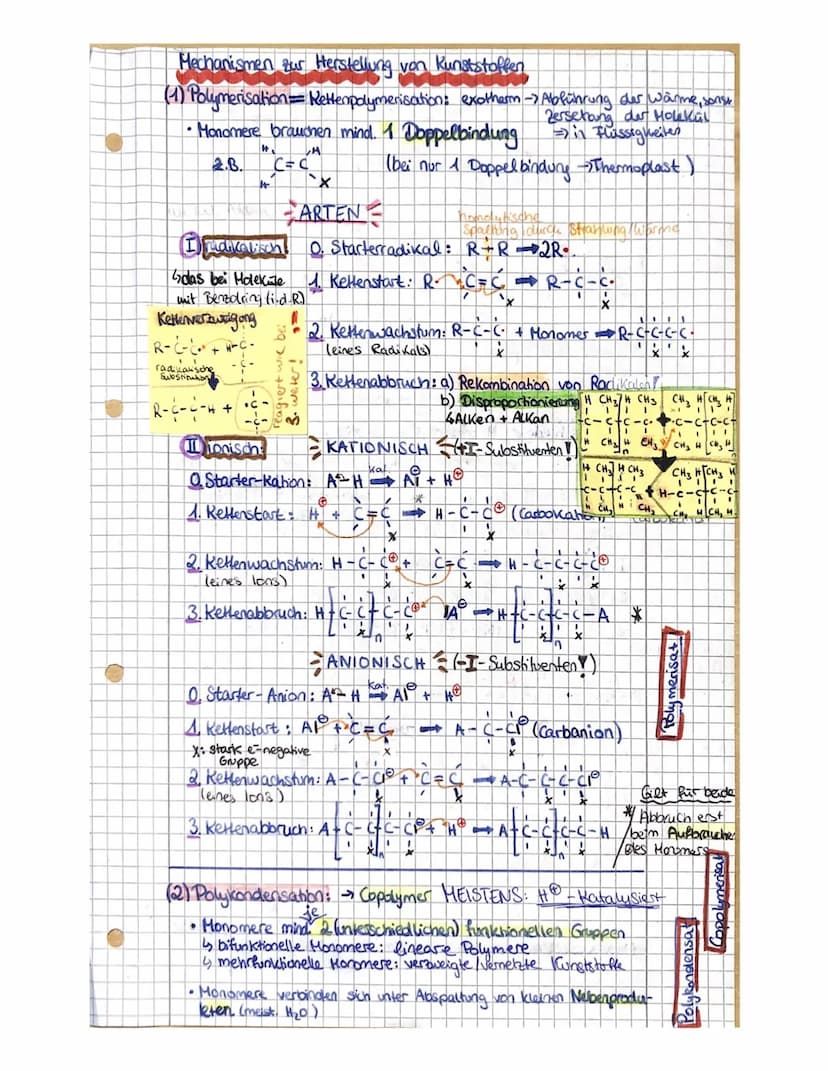 Mechanismen zur Herstellung von Kunststoffen
(1) Polymerisation = Kettenpolymerisation: exotherm → Abführung der Wärme, sonst
Zersetzung der Molekül
⇒ in Flüssigkeiten
• Monomere brauchen mind. 1 Doppelbindung
z.B. C=C H H H X (bei nur 1 Doppelbindung → Thermoplast)
ARTEN
homolytische
Spaltung durch Strahlung/Wärme
I radikalisch: 0. Starterradikal: R+R → 2R•
↳ das bei Moleküle
mit Benzolring (i.d.R)
1. Kettenstart: R• C=C X ⇒ R-C-C• X
Kettenverzweigung
R-C-C• + H-C-
radikalische
Substitution
R-C-C-H + •C-
reagiert wie bei
3. weiter!
2. Kettenwachstum: R-C-C• X + Monomer ⇒ R-C-C-C-C• X X
(eines Radikals)
3. Kettenabbruch: a) Rekombination von Radikalen!
b) Disproportionierung
↳ Alken + Alkan
H CH₃ H CH₃ CH₃ H CH₃ H
-C-C-C-C• + •C-C-C-C-
H CH₃ CH₃ H CH₃ H
H CH₃ H CH₃ CH₃ H CH₃ H
-C-C-C-C + H-C-C-C-C-
H CH₃ H CH₃ CH₃ H CH₃ H
II ionisch: KATIONISCH (+I-Substituenten!)
0. Starter-Kation: A-H Kat. → A|⊖ + H⊕
1. Kettenstart: H⊕ + C=C X * ⇒ H-C-C⊕ X (Carbokation)
2. Kettenwachstum: H-C-C⊕ X + C=C X ⇒ H-C-C-C-C⊕ X X
(eines Ions)
3. Kettenabbruch: H[C-C]n C-C⊕ X X |A⊖ → H[C-C]n C-C-A X X *
ANIONISCH (-I-Substituenten!)
0. Starter-Anion: A-H Kat. → A|⊖ + H⊕
1. Kettenstart: A|⊖ + C=C X → A-C-C|⊖ X (Carbanion)
X: stark e⁻-negative
Gruppe
2. Kettenwachstum: A-C-C|⊖ X + C=C X → A-C-C-C-C|⊖ X X
(eines Ions)
3. Kettenabbruch: A[C-C]n C-C|⊖ X X + H⊕ → A[C-C]n C-C-H X X
Gilt für beide
* Abbruch erst
beim Aufbrauchen
des Monomers
Polymerisat
(2) Polykondensation: → Copolymer MEISTENS: H⊕-Katalysiert
• Monomere mind. je 2 (unterschiedlichen) funktionellen Gruppen
↳ bifunktionelle Monomere: lineare Polymere
↳ mehrfunktionelle Monomere: verzweigte/vernetzte Kunststoffe
• Monomere verbinden sich unter Abspaltung von kleinen Nebenprodu-
kten (meist. H₂O)
Copolymerisat
Polykondensat